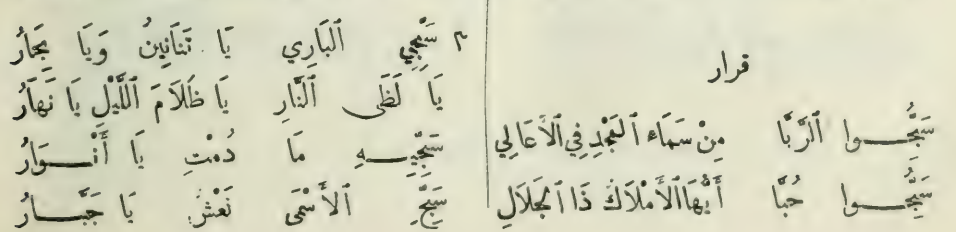 قرار
سَبِّحُوا ٱلرَّبَّا مِنْ سَمَاءِ ٱلْمَجْدِ فِي ٱلْأَعَالِي
سَبِّحُوا حُبًّا أَيُّهَا ٱلْأَمْلَاكُ ذَا ٱلْجَلَالِ
٢ سَبِّحِي ٱلْبَارِي يَا تَنَانِينُ وَيَا بِحَارُ
يَا لَظَى ٱلنَّارِ يَا ظَلَامَ ٱللَّيْلِ يَا نَهَارُ
سَبِّحِيهِ مَا دُمْتِ يَا أَنْوَارُ
سَبِّحِ ٱلْأَسْمَى نَعْشُ يَا جَبَّارُ